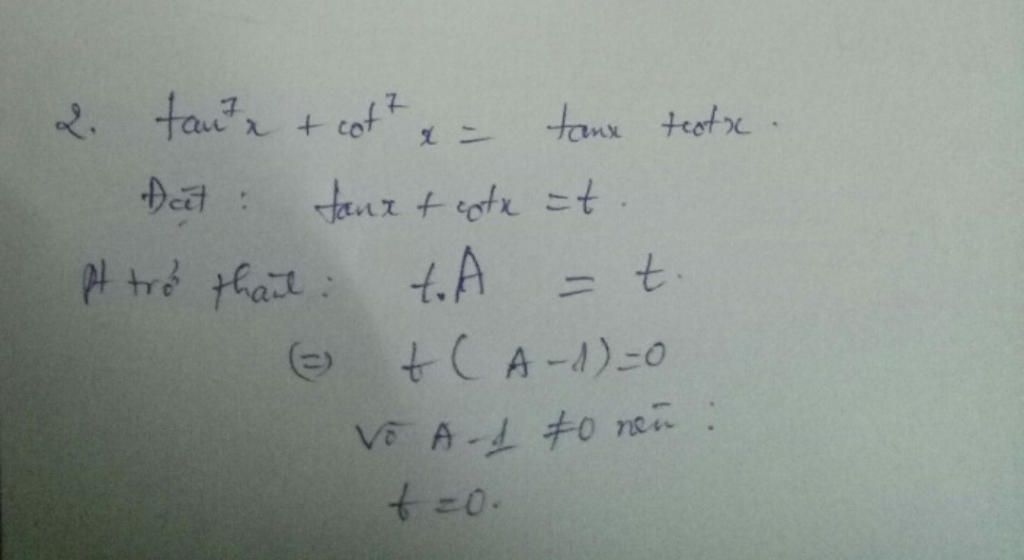 2. tan⁷x + cot⁷x = tanx + cotx.
Đặt : tanx + cotx = t.
Pt trở thành : t.A = t.
(=) t ( A - 1) = 0
Vì A - 1 ≠ 0 nên :
t = 0.